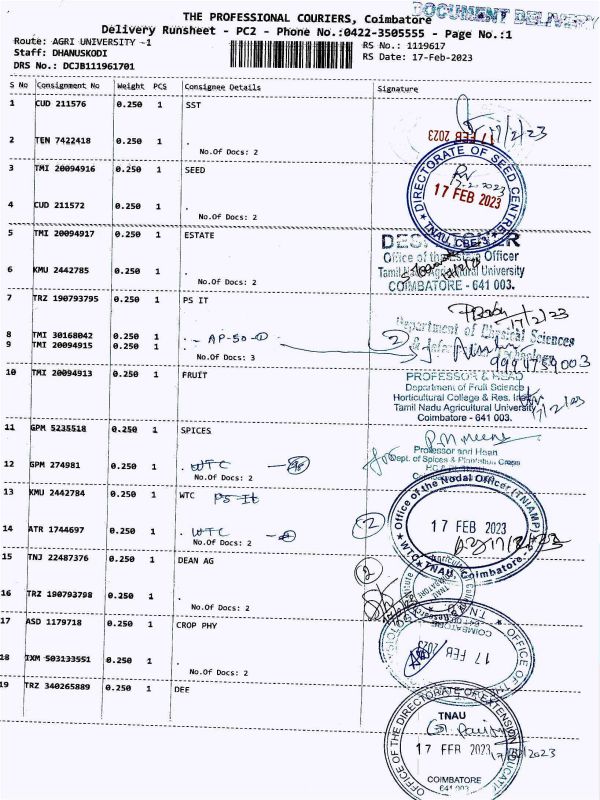 THE PROFESSIONAL COURIERS, Coimbatore
DOCUMENT DELIVERY
Delivery Runsheet - PC2 - Phone No.:0422-3505555 - Page No.:1
Route: AGRI UNIVERSITY -1
RS No.: 1119617
Staff: DHANUSKODI
RS Date: 17-Feb-2023
DRS No.: DCJB111961701
S No Consignment No Weight PCS Consignee Details Signature
1 CUD 211576 0.250 1 SST
17/2/23
17 FEB 2023
2 TEN 7422418 0.250 1 .
No.Of Docs: 2
3 TMI 20094916 0.250 1 SEED
DIRECTORATE OF SEED CENTRE
17 FEB 2023
TNAU, CBE-3
4 CUD 211572 0.250 1 .
No.Of Docs: 2
5 TMI 20094917 0.250 1 ESTATE
Office of the Estate Officer
Tamil Nadu Agricultural University
COIMBATORE - 641 003.
6 KMU 2442785 0.250 1 .
No.Of Docs: 2
7 TRZ 190793795 0.250 1 PS IT
17/2/23
Department of Physical Sciences
8 TMI 30168042 0.250 1 . - AP-50-①
9 TMI 20094915 0.250 1 .
No.Of Docs: 3
2
10 TMI 20094913 0.250 1 FRUIT
PROFESSOR & HEAD
Department of Fruit Science
Horticultural College & Res. Inst.
Tamil Nadu Agricultural University
Coimbatore - 641 003.
17/2/23
11 GPM 5235518 0.250 1 SPICES
Professor and Head
Dept. of Spices & Plantation Crops
12 GPM 274981 0.250 1 . WTC
No.Of Docs: 2
13 KMU 2442784 0.250 1 WTC PS It
Office of the Nodal Officer (TNIAMP)
17 FEB 2023
WTC, TNAU, Coimbatore
2
14 ATR 1744697 0.250 1 . WTC
No.Of Docs: 2
15 TNJ 22487376 0.250 1 DEAN AG
2
16 TRZ 190793798 0.250 1 .
No.Of Docs: 2
17 ASD 1179718 0.250 1 CROP PHY
COIMBATORE
17 FEB 2023
18 IXM 503133551 0.250 1 .
No.Of Docs: 2
19 TRZ 340265889 0.250 1 DEE
OFFICE OF THE DIRECTORATE OF EXTENSION EDUCATION
TNAU
17 FEB 2023
COIMBATORE